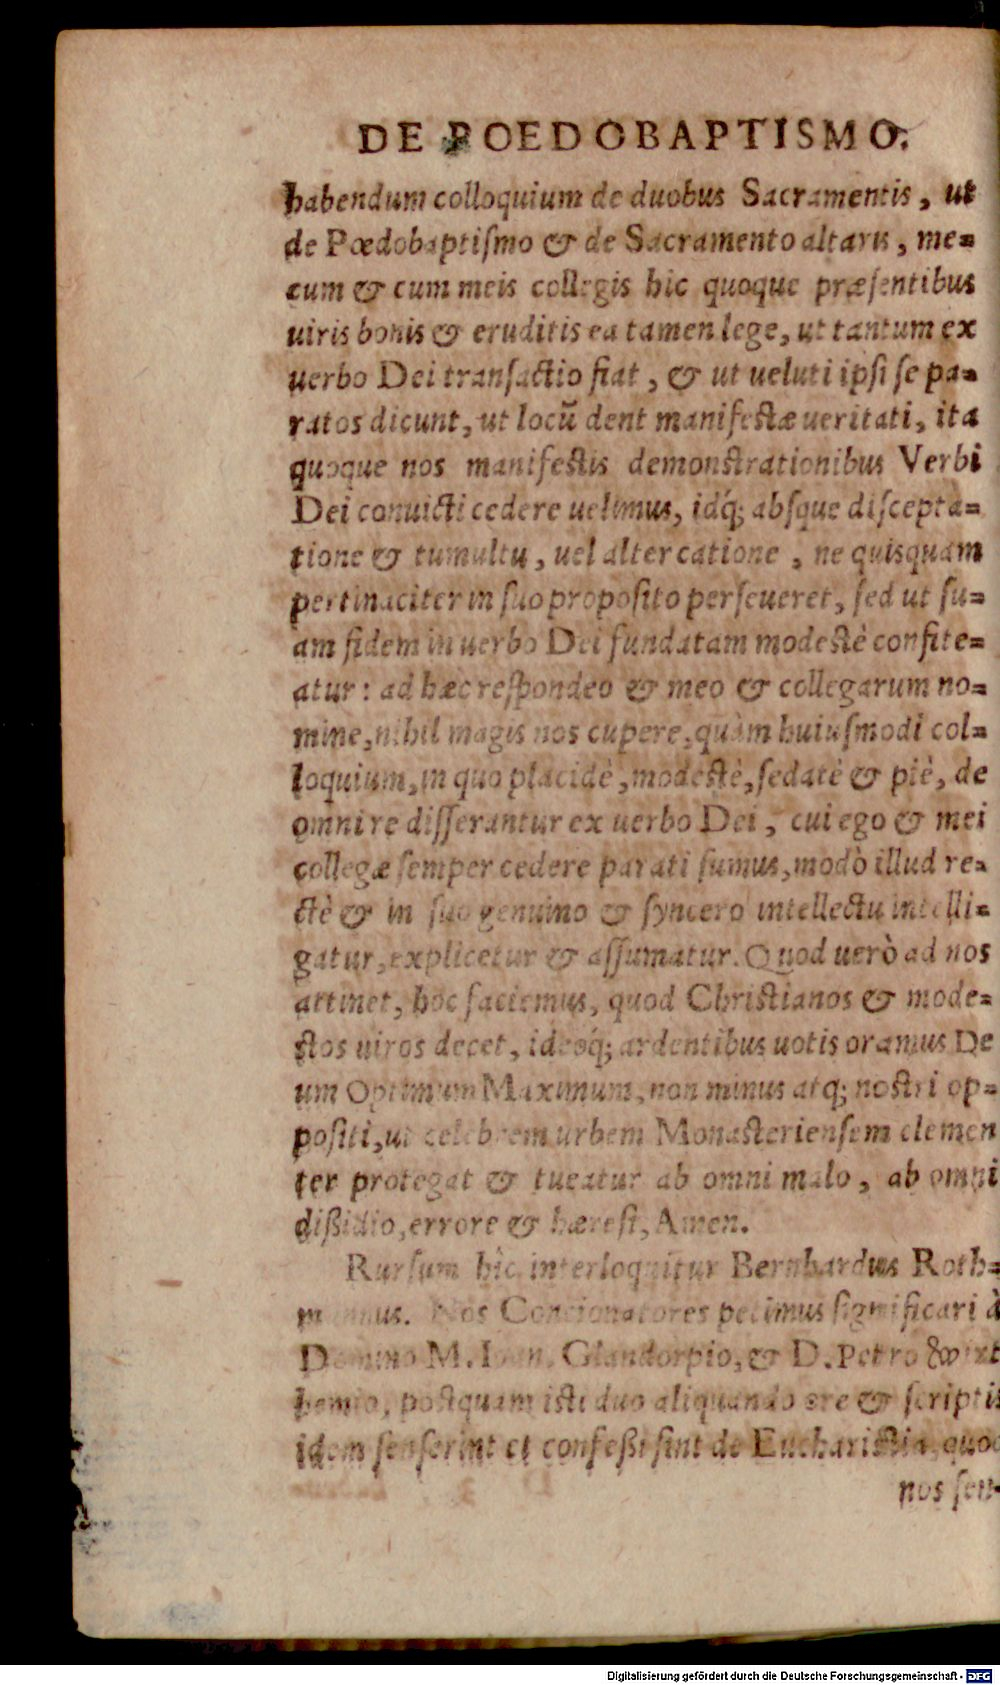 DE POEDOBAPTISMO.
habendum colloquium de duobus Sacramentis, ut
de Pœdobaptiſmo & de Sacramento altaris, me=
cum & cum meis collegis hic quoque præſentibus
uiris bonis & eruditis ea tamen lege, ut tantum ex
uerbo Dei tranſactio fiat, & ut ueluti ipſi ſe pa=
ratos dicunt, ut locũ dent manifeſtæ ueritati, ita
quoque nos manifeſtis demonſtrationibus Verbi
Dei conuicti cedere uelimus, idq́; abſque diſcepta=
tione & tumultu, uel altercatione, ne quisquam
pertinaciter in ſuo propoſito perſeueret, ſed ut ſu=
am fidem in uerbo Dei fundatam modeſtè confite=
atur: ad hæc reſpondeo & meo & collegarum no=
mine, nihil magis nos cupere, quàm huiuſmodi col=
loquium, in quo placidè, modeſtè, ſedatè & piè, de
omni re diſſerantur ex uerbo Dei, cui ego & mei
collegæ ſemper cedere parati ſumus, modò illud re=
ctè & in ſuo genuino & ſyncero intellectu intelli=
gatur, explicetur & aſſumatur. Quod uerò ad nos
attinet, hoc faciemus, quod Chriſtianos & mode=
ſtos uiros decet, ideoq́; ardentibus uotis oramus De
um Optimum Maximum, non minus atq; noſtri op=
poſiti, ut celebrem urbem Monaſterienſem clemen
ter protegat & tueatur ab omni malo, ab omni
dißidio, errore & hæreſi, Amen.
Rurſum hîc interloquitur Bernhardus Roth=
mannus. Nos Concionatores petimus ſignificari à
Domino M. Ioan. Glandorpio, & D. Petro Wirt
hemio, poſtquam iſti duo aliquando ore & ſcriptis
idem ſenſerint et confeßi ſint de Euchariſtia, quod
nos ſen=
Digitalisierung gefördert durch die Deutsche Forschungsgemeinschaft - DFG